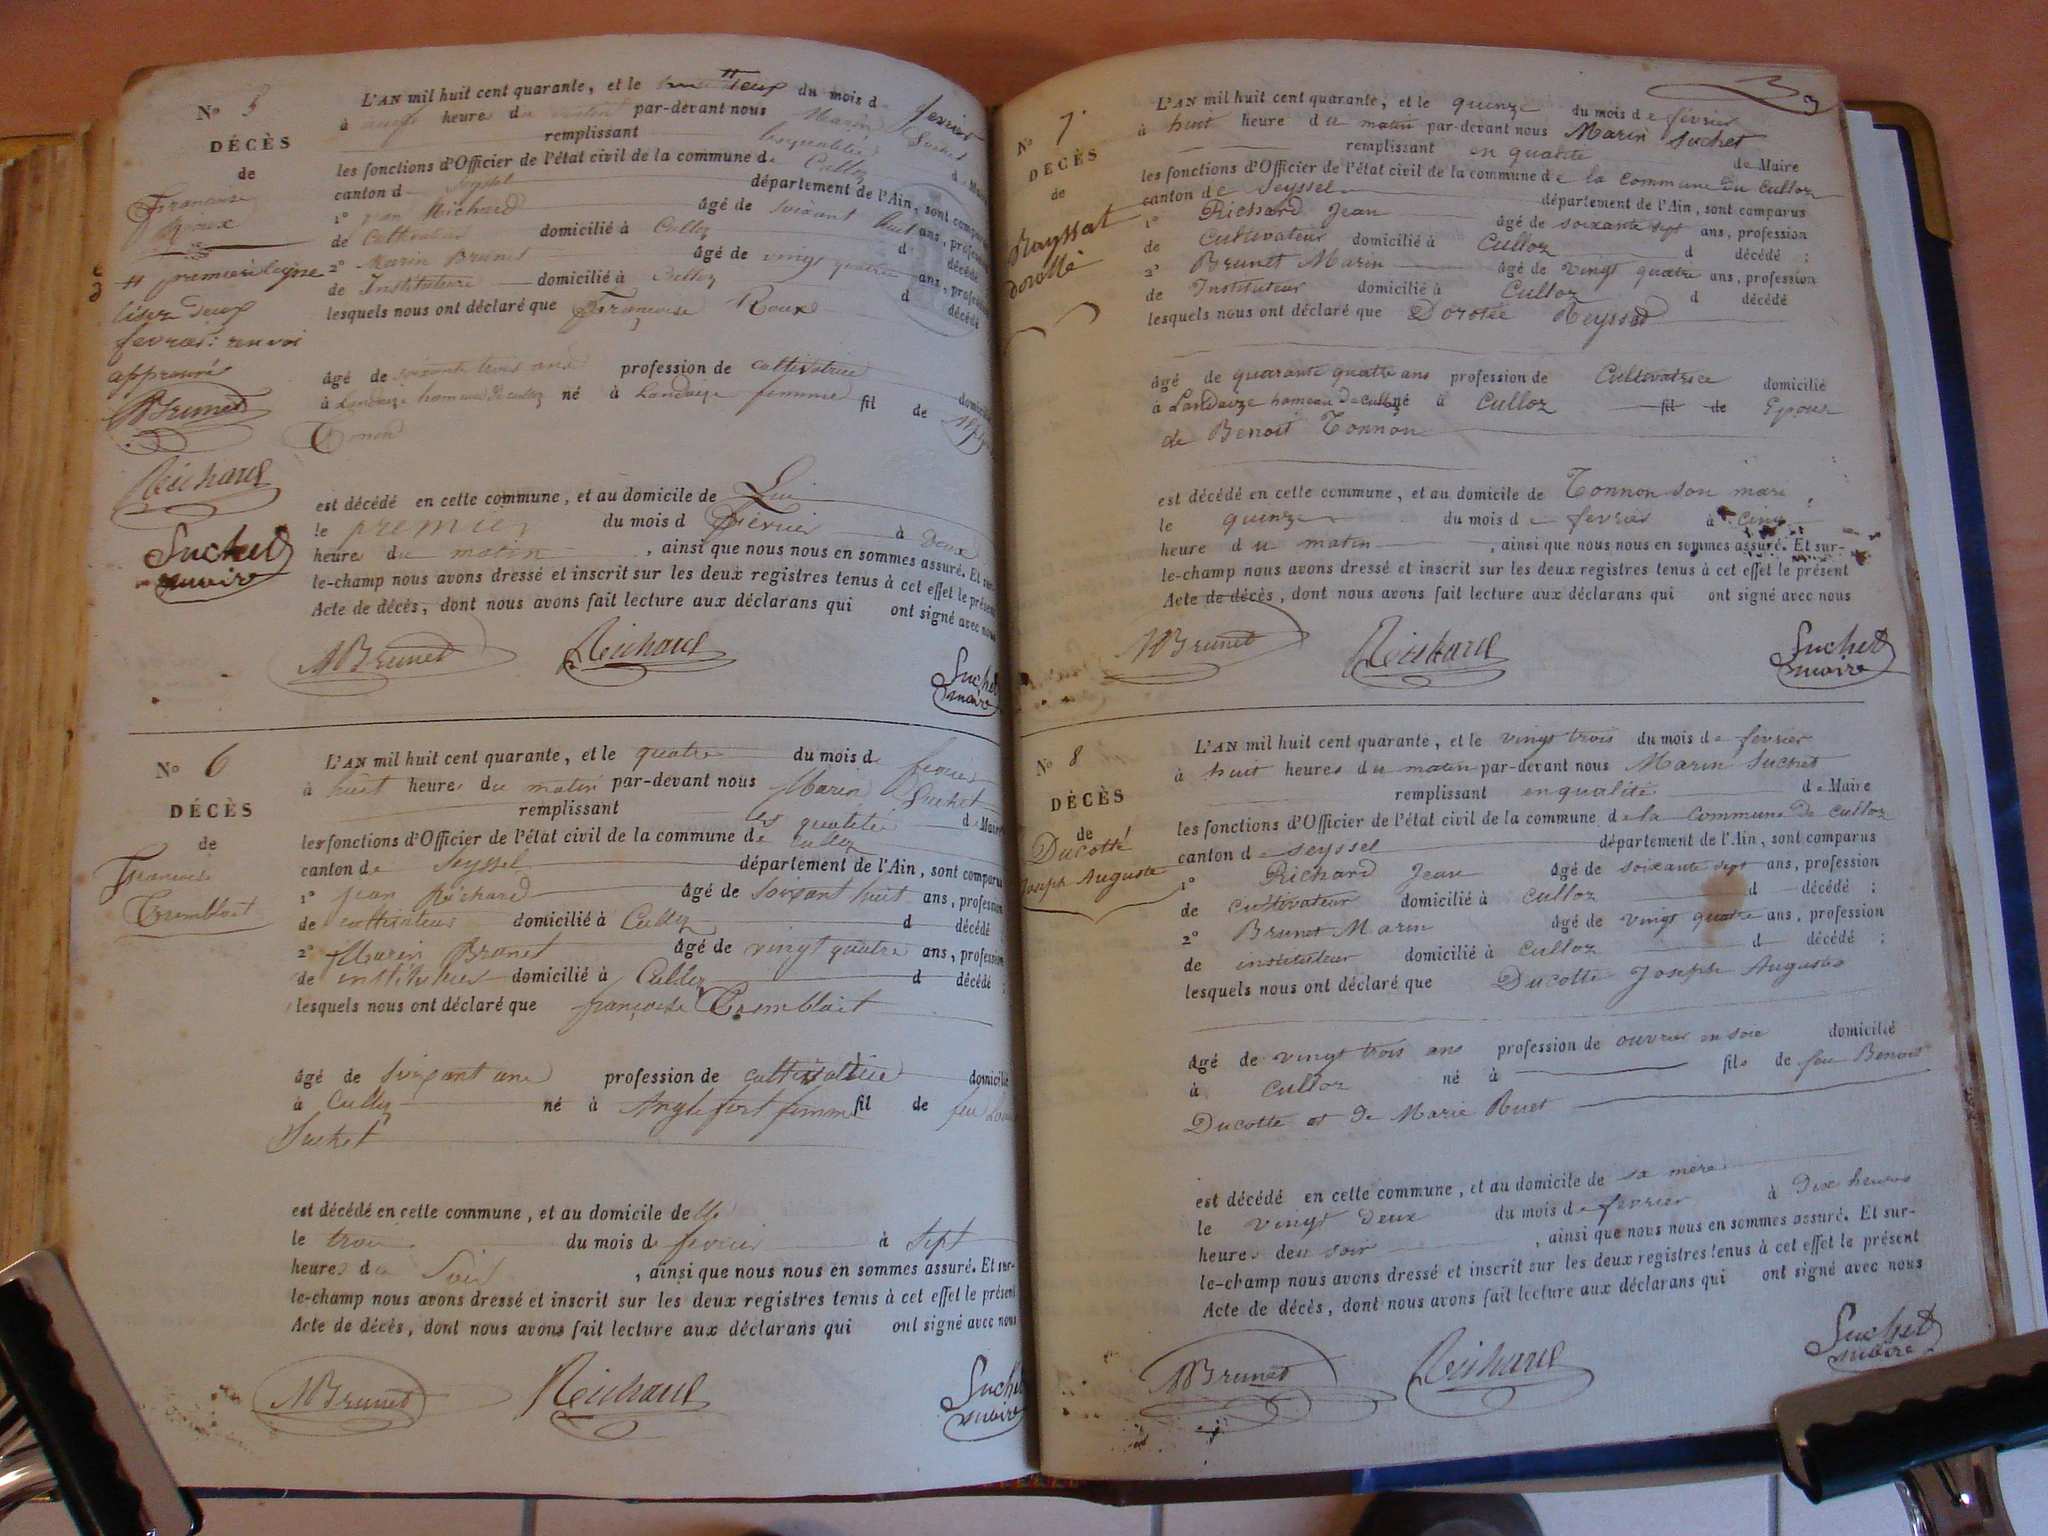 N° 5
DÉCÈS
de
Françoise
Roux
# première ligne
lisez deux
fevrier: renvoi
approuvé
MBrunet
Richard
Suchet
maire
L'AN mil huit cent quarante, et le deux du mois d fevrier
à heures du matin par-devant nous Marin Suchet
remplissant les qualités de Maire
les fonctions d'Officier de l'état civil de la commune de Culloz
canton d Seyssel département de l'Ain, sont comparus
1° jean Richard âgé de soixant huit ans, profession
de Cultivateur domicilié à Culloz d décédé
2° Marin Brunet âgé de vingt quatre ans, profession
de Instituteur domicilié à Culloz d décédé
lesquels nous ont déclaré que Françoise Roux
âgé de soixante trois ans profession de cultivatrice domicilié
à Landaize hameau de culloz né à Landaize femme fil de
Tonon
est décédé en cette commune, et au domicile de Lui
le premier du mois d Février à deux
heures du matin, ainsi que nous nous en sommes assuré. Et sur-
le-champ nous avons dressé et inscrit sur les deux registres tenus à cet effet le présent
Acte de décès, dont nous avons fait lecture aux déclarans qui ont signé avec nous
MBrunet Richard Suchet
maire
N° 6
DÉCÈS
de
Francoise
Tremblait
L'AN mil huit cent quarante, et le quatre du mois de fevrier
à huit heures du matin par-devant nous Marin Suchet
remplissant les qualités de Maire
les fonctions d'Officier de l'état civil de la commune de Culloz
canton de Seyssel département de l'Ain, sont comparus
1° jean Richard âgé de soixant huit ans, profession
de cultivateur domicilié à Culloz d décédé
2° Marin Brunet âgé de vingt quatre ans, profession
de instituteur domicilié à Culloz d décédé;
lesquels nous ont déclaré que françoise Tremblait
âgé de soixant ans profession de cultivatrice domicilié
à Culloz né à Anglefort femme fil de feu Louis
Suchet
est décédé en cette commune, et au domicile de lle
le trois du mois de fevrier à sept
heures du Soir, ainsi que nous nous en sommes assuré. Et sur-
le-champ nous avons dressé et inscrit sur les deux registres tenus à cet effet le présent
Acte de décès, dont nous avons fait lecture aux déclarans qui ont signé avec nous
MBrunet Richard Suchet
maire
3
N° 7
DÉCÈS
de
Rayssat
dorotté
L'AN mil huit cent quarante, et le quinze du mois de fevrier
à huit heure du matin par-devant nous Marin Suchet
remplissant en qualité de Maire
les fonctions d'Officier de l'état civil de la commune de la commune du Culloz
canton de Seyssel département de l'Ain, sont comparus
1° Richard Jean âgé de soixante sept ans, profession
de Cultivateur domicilié à Culloz d décédé;
2° Brunet Marin âgé de vingt quatre ans, profession
de Instituteur domicilié à Culloz d décédé
lesquels nous ont déclaré que Dorotée Reyssad
âgé de quarante quatre ans profession de Cultivatrice domicilié
à Landaize hameau de culloz né à Culloz fil de Epouse
de Benoit Tonnon
est décédé en cette commune, et au domicile de Tonnon son mari,
le quinze du mois de fevrier à cinq
heure du matin, ainsi que nous nous en sommes assuré. Et sur-
le-champ nous avons dressé et inscrit sur les deux registres tenus à cet effet le présent
Acte de décès, dont nous avons fait lecture aux déclarans qui ont signé avec nous
MBrunet Richard Suchet
maire
N° 8
DÉCÈS
de
Ducotté
Joseph Auguste
L'AN mil huit cent quarante, et le vingt trois du mois de fevrier
à huit heures du matin par-devant nous Marin Suchet
remplissant en qualité de Maire
les fonctions d'Officier de l'état civil de la commune de la commune de culloz
canton de seyssel département de l'Ain, sont comparus
1° Richard Jean âgé de soixante sept ans, profession
de cultivateur domicilié à culloz d décédé;
2° Brunet Marin âgé de vingt quatre ans, profession
de instituteur domicilié à culloz d décédé;
lesquels nous ont déclaré que Ducotte Joseph Auguste
âgé de vingt trois ans profession de ouvrier en soie domicilié
à culloz né à fils de feu Benoit
Ducotte et de Marie Ruet
est décédé en cette commune, et au domicile de sa mère
le vingt deux du mois de fevrier à Dix heures
heures deu soir, ainsi que nous nous en sommes assuré. Et sur-
le-champ nous avons dressé et inscrit sur les deux registres tenus à cet effet le présent
Acte de décès, dont nous avons fait lecture aux déclarans qui ont signé avec nous
MBrunet Richard Suchet
maire